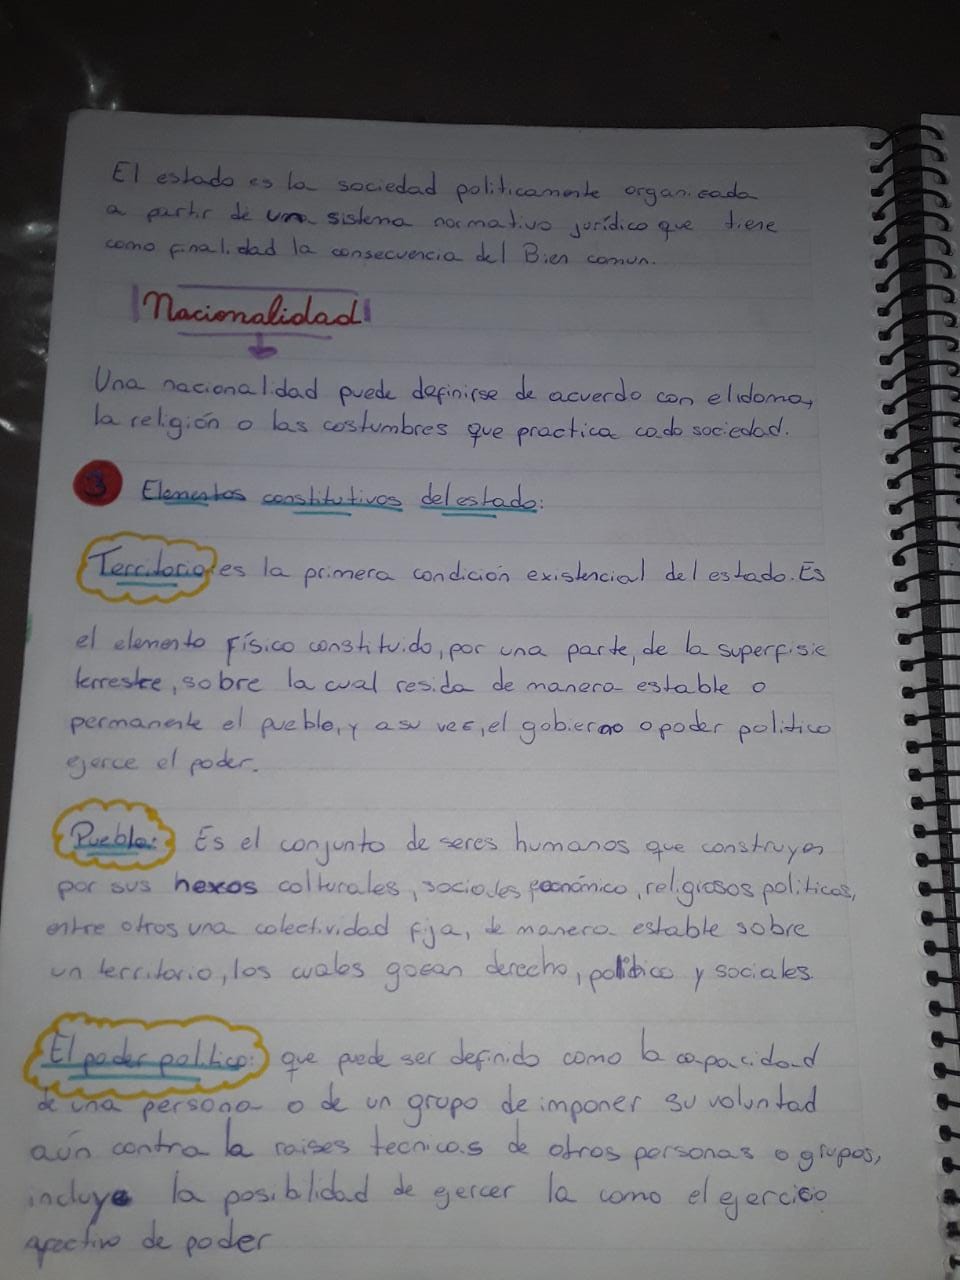 El estado es la sociedad politicamente organizada
a partir de un sistema normativo jurídico que tiene
como finalidad la consecuencia del Bien comun.
Nacionalidad
Una nacionalidad puede definirse de acuerdo con el idoma,
la religión o las costumbres que practica cada sociedad.
3 Elementos constitutivos del estado:
Territorio: es la primera condición existencial del estado. Es
el elemento físico constituido, por una parte, de la superfisie
terrestre, sobre la cual resida de manera estable o
permanente el pueblo, y a su vez, el gobierno o poder politico
ejerce el poder.
Pueblo: Es el conjunto de seres humanos que construyen
por sus hexos colturales, sociales económico, religiosos politicos,
entre otros una colectividad fija, de manera estable sobre
un territorio, los cuales gozan derecho, politico y sociales.
El poder politico: que puede ser definido como la capacidad
de una persona o de un grupo de imponer su voluntad
aún contra la raises tecnicas de otros personas o grupos,
incluye la posibilidad de ejercer la como el ejercicio
de poder